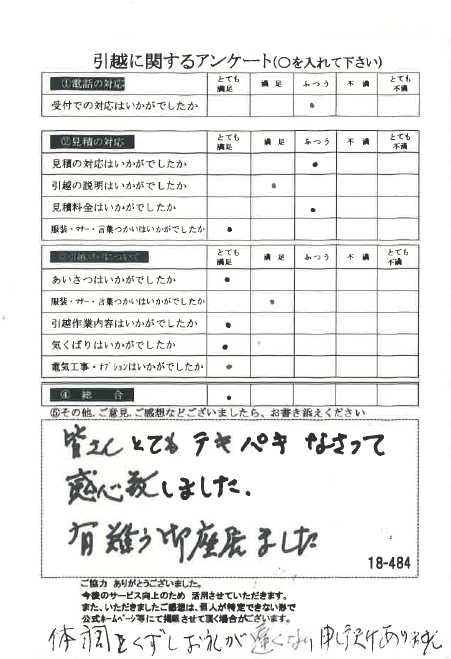 引越に関するアンケート(○を入れて下さい)
①電話の対応 とても満足 満足 ふつう 不満 とても不満
受付での対応はいかがでしたか
②見積の対応 とても満足 満足 ふつう 不満 とても不満
見積の対応はいかがでしたか
引越の説明はいかがでしたか
見積料金はいかがでしたか
服装・マナー・言葉つかいはいかがでしたか
とても満足 満足 ふつう 不満 とても不満
あいさつはいかがでしたか
服装・マナー・言葉つかいはいかがでしたか
引越作業内容はいかがでしたか
気くばりはいかがでしたか
電気工事・オプションはいかがでしたか
④ 総 合
⑤その他、ご意見、ご感想などございましたら、お書き添えください
皆さんとてもテキパキなさって
感心致しました.
有難う御座居ました
18-484
ご協力 ありがとうございました。
今後のサービス向上のため 活用させていただきます。
また、いただきましたご感想は、個人が特定できない形で
公式ホームページ等にて掲載させて頂く場合がございます。
体調をくずしお礼が遅くなり申し訳ありません